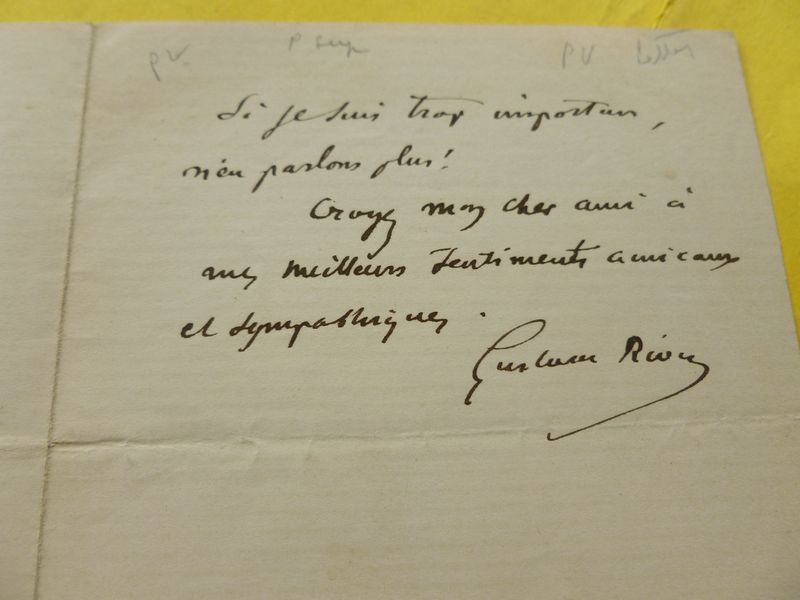 PV. P PV Lettres
Si je suis trop importun,
n'en parlons plus!
Croyez mon cher ami à
mes meilleurs sentiments amicaux
et sympathiques.
Gustave Rivet